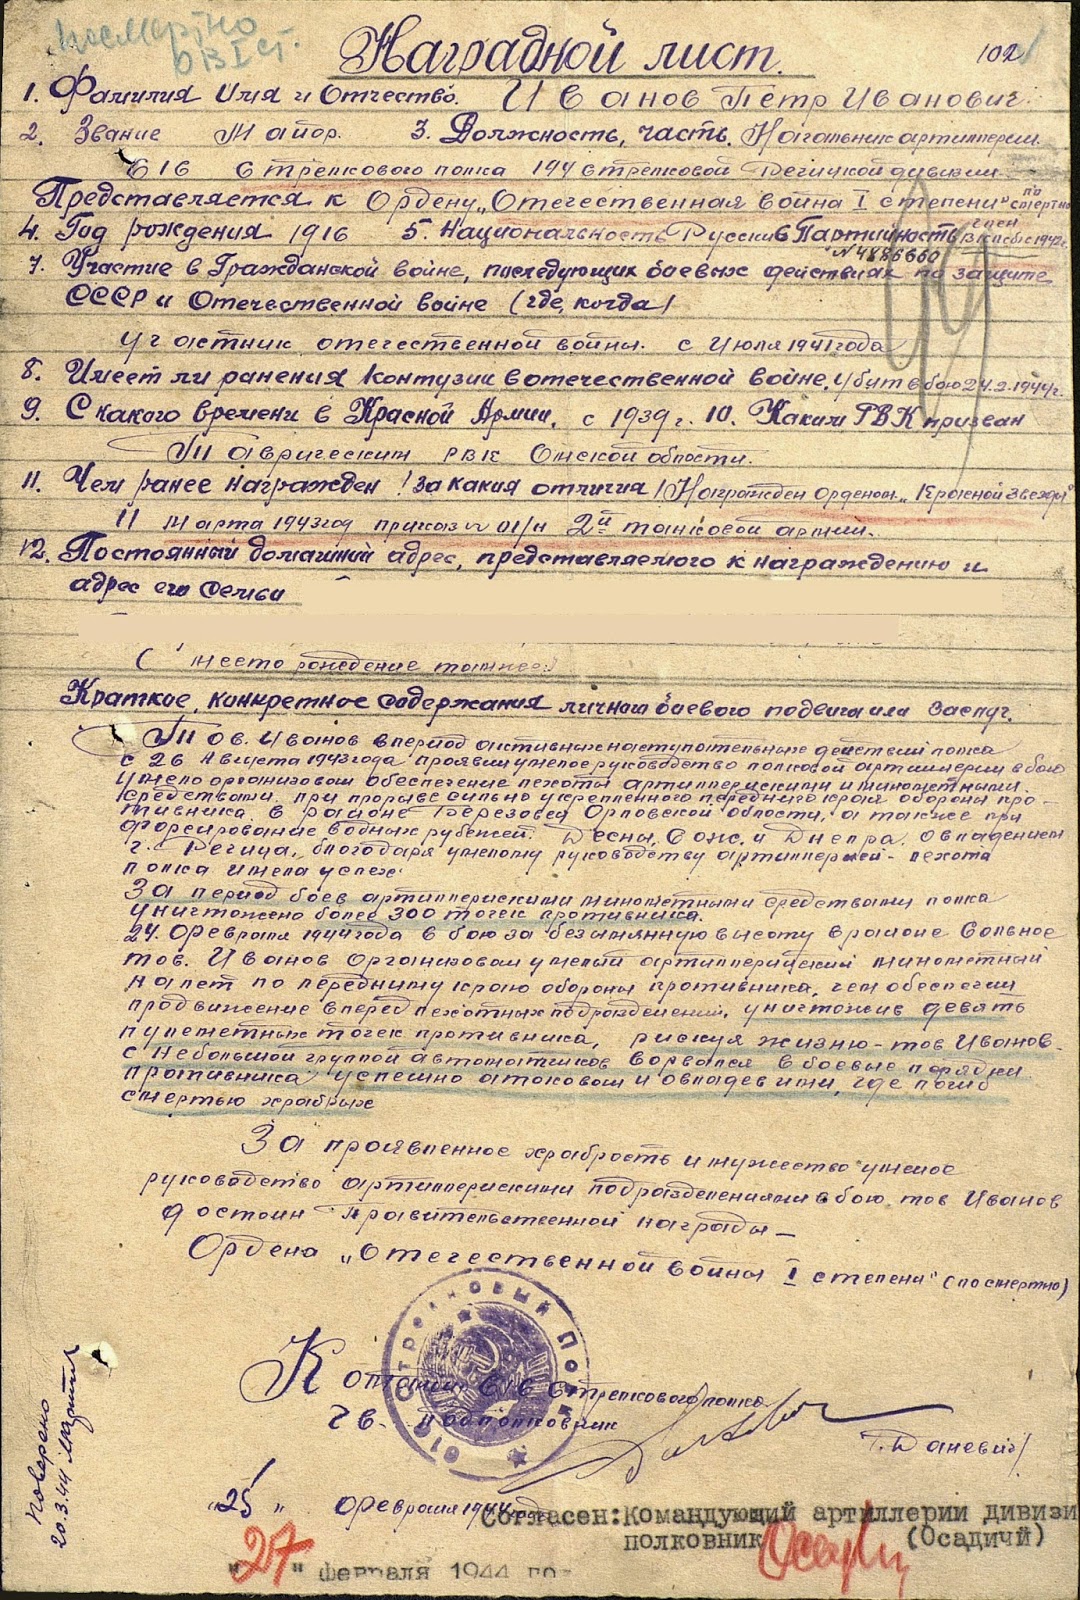 посмертно
ОВ I ст.
Наградной лист.
102
1. Фамилия Имя и Отчество. Иванов Пётр Иванович.
2. Звание Майор. 3. Должность, часть. Начальник артиллерии
616 стрелкового полка 194 стрелковой Речицкой дивизии
Представляется к Ордену „Отечественная война I степени" посмертно
4. Год рождения 1916 5. Национальность Русский 6 Партийность член ВКП(б) с 1942г.
N 4886660
7. Участие в Гражданской войне, последующих боевых действиях по защите
СССР и Отечественной войне (где, когда)
участник отечественной войны. с Июля 1941 года
8. Имеет ли ранения контузии в отечественной войне. убит в бою 24.2.1944г.
9. С какого времени в Красной Армии. с 1939 г. 10. Каким РВК призван
Таврическим РВК Омской области.
11. Чем ранее награжден (за какия отличия) Награжден Орденом „Красной Звезды"
11 Марта 1943год приказ № 01/н 2й танковой армии.
12. Постоянный домашний адрес, представляемого к награждению и
адрес его семьи
место рождение
Краткое, конкретное содержания личного боевого подвига или заслуг.
Тов. Иванов в период активных наступательных действий полка
с 26 Августа 1943 года проявил умелое руководство полковой артиллерии в бою
умело организовал обеспечение пехоты артиллерискими и минометными.
средствами, при прорыве сильно укрепленного переднего края обороны про-
тивника в районе Березовец Орловской области, а также при
форсирование водных рубежей. Десны, Сож, и Днепра. Овладением
г. Речица, благодаря умелому руководству артиллерией - пехота
полка имела успех.
За период боев артиллерискими минометными средствами полка
уничтожено более 300 точек противника.
24. Февраля 1944 года в бою за безымянную высоту в районе Вольное
тов. Иванов Организовал умелый артиллерийский минометный
налет по переднему краю обороны противника, чем обеспечил
продвижение вперед пехотных подразделений, уничтожив девять
пулеметных точек противника, рискуя жизню - тов Иванов.
с небольшой группой автоматчиков ворвался в боевые порядки
противника успешно атаковал и овладев ими, где погиб
смертью храбрых
За проявленное храбрость и мужество умелое
руководство артиллерискими подразделениями в бою тов Иванов
достоин правительственной награды -
Ордена „Отечественной войны I степени" (посмертно)
616 Стрелковый Полк
Командир 616 стрелкового полка
Гв. подполковник
/Г. Даневич/
Поверено
20.3.44
„25" Февраля 1944 года
Согласен: Командующий артиллерии дивизи
полковник (Осадчий)
"27" февраля 1944 го-